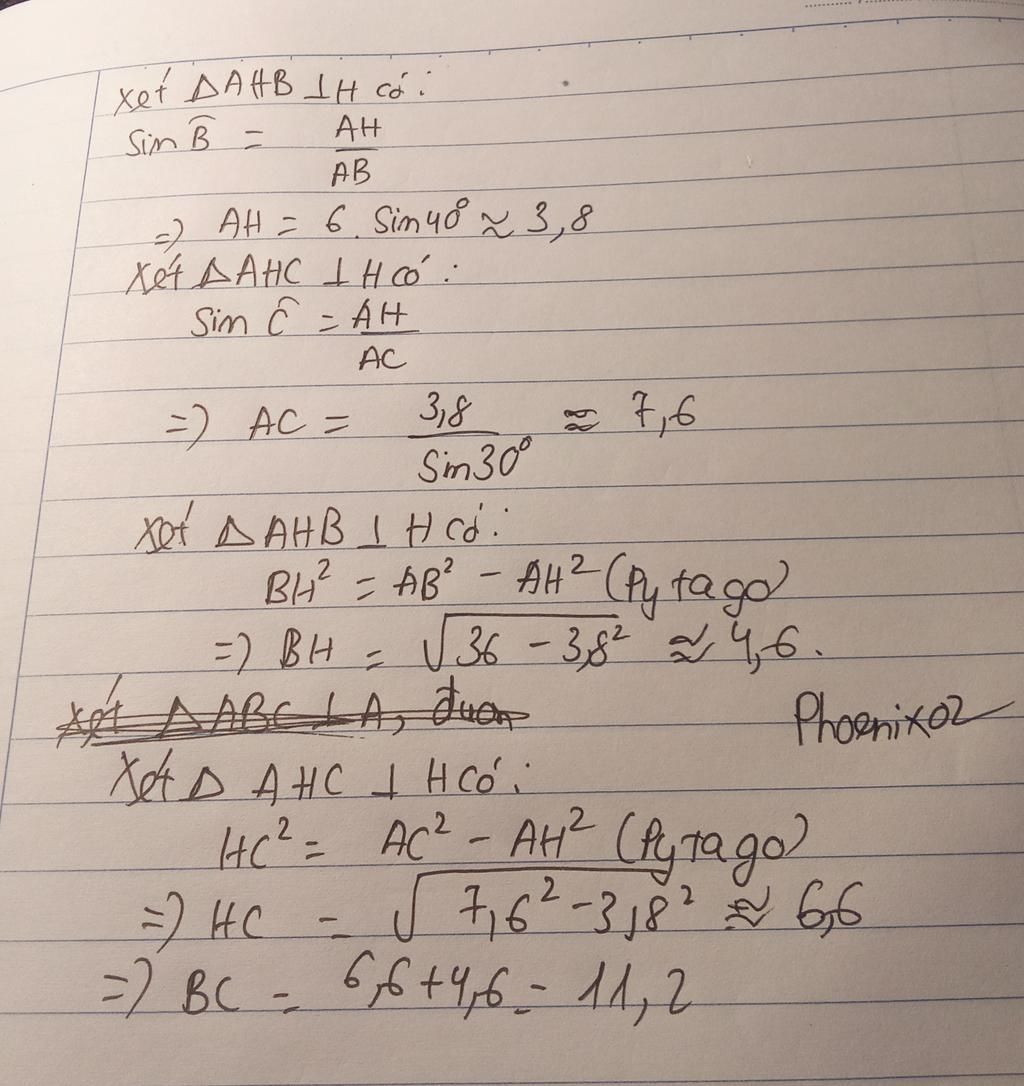 Xét △AHB ⊥H có:
Sin B̂ = AH/AB
=) AH = 6. Sin40° ≈ 3,8
Xét △AHC ⊥H có:
Sin Ĉ = AH/AC
=) AC = 3,8/Sin30° ≈ 7,6
Xét △AHB ⊥ H có:
BH² = AB² - AH² (Pytago)
=) BH = √(36 - 3,8²) ≈ 4,6.
Xét △ABC ⊥ A, đươn
Phoenix02
Xét △ AHC ⊥ H Có:
HC² = AC² - AH² (Pytago)
=) HC = √(7,6² - 3,8²) ≈ 6,6
=) BC = 6,6+4,6 = 11,2